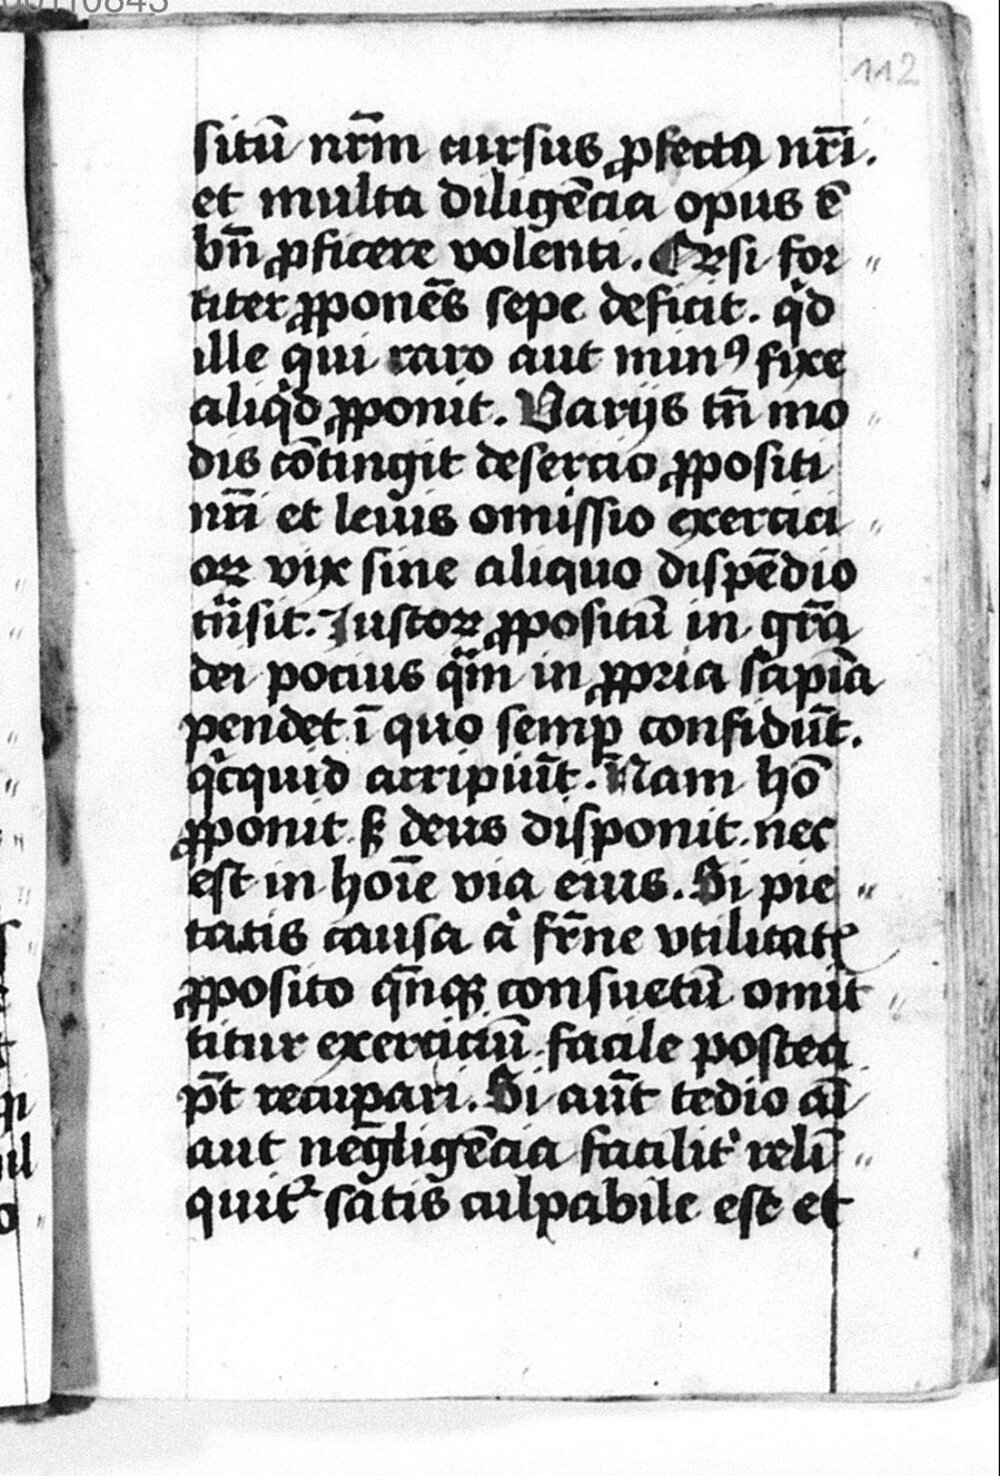 00110843
112
situ̅ nr̅m cursus ꝓfectꝯ nr̅i.
et multa dilige̅cia opus e̅
bn̅ ꝓficere volenti. Qꝛ si for〃
titer ꝓpone̅s sepe deficit. qͥd
ille qui raro aut minꝰ fixe
aliqͥd ꝓponit. Varijs tn̅ mo〃
dis co̅tingit desercio ꝓpositi
nr̅i et leuis omissio exercici〃
oꝝ vix sine aliquo dispe̅dio
tn̅sit. Iustoꝝ ꝓpositu̅ in gr̅a
dei pocius qͣm in ꝓpria sapi̅a
pendet i̅ quo semꝑ confidu̅t.
qͥcquid arripiu̅t. Nam ho̅
ꝓponit sꝫ deus disponit. nec
est in hoi̅e via eius. Si pie〃
tatis causa aͧ fr̅ne vtilitatꝭ
ꝓposito qn̅qꝫ consuetu̅ omit〃
titur exerciciu̅. facile postea
pt̅ recuꝑari. Si au̅t tedio ai̅
aut neglige̅cia facilit᾽ reli̅〃
quit᾽ satis culpabile est et